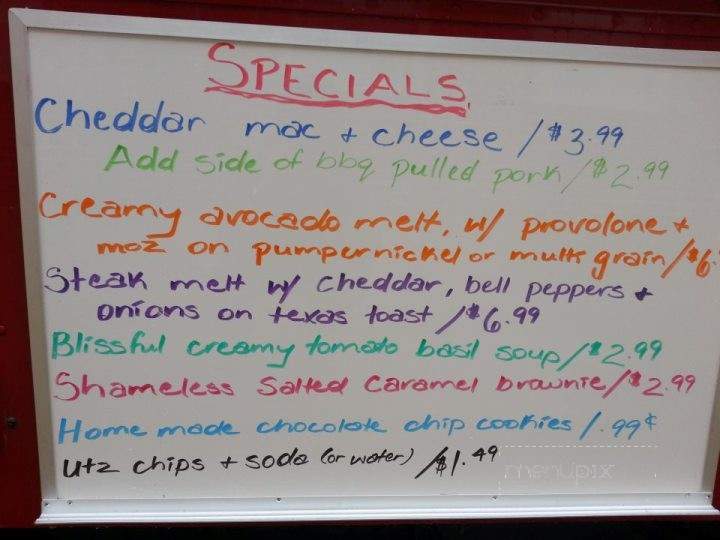 SPECIALS
Cheddar mac + cheese / $3.99
Add side of bbq pulled pork / $2.99
Creamy avocado melt, w/ provolone +
moz on pumpernickel or multi grain / $6.
Steak melt w/ cheddar, bell peppers +
onions on texas toast / $6.99
Blissful creamy tomato basil soup / $2.99
Shameless Salted Caramel brownie / $2.99
Home made chocolate chip cookies / .99¢
Utz chips + soda (or water) / $1.49
menupix